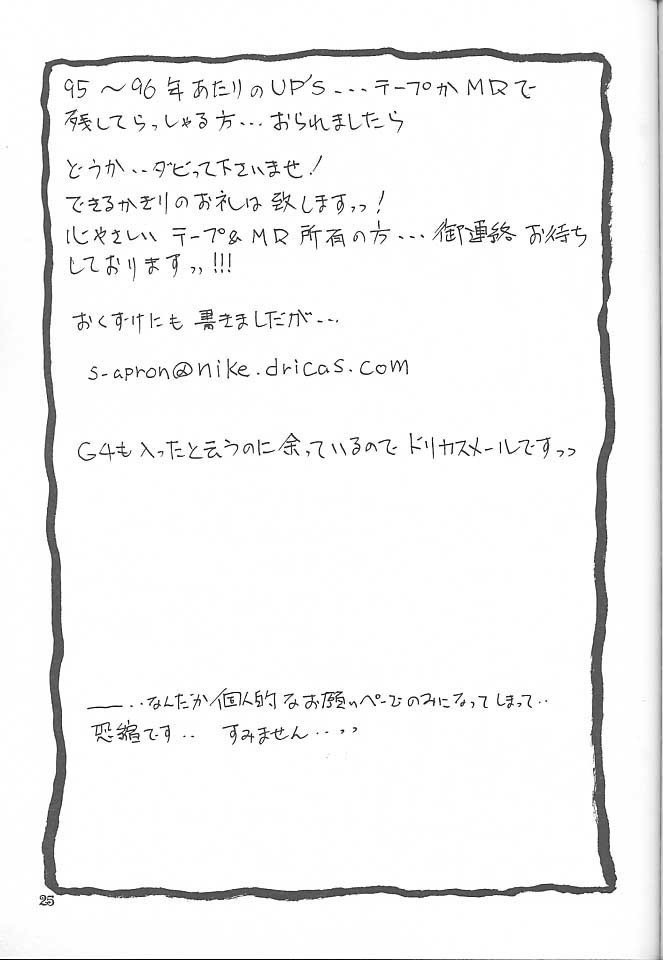 95～96年あたりのUP'S...テープかMDで
残してらっしゃる方...おられましたら
どうか..ダビって下さいませ!
できるかぎりのお礼は致しますっっ!
心やさしい テープ&MD所有の方...御連絡お待ち
しておりますっっ!!!
おくずけにも書きましたが...
s-apron@nike.dricas.com
G4も入ったと云うのに余っているのでドリカスメールですっっ
――..なんだか個人的なお願いページのみになってしまって..
恐縮です.. すみません..っっ
25